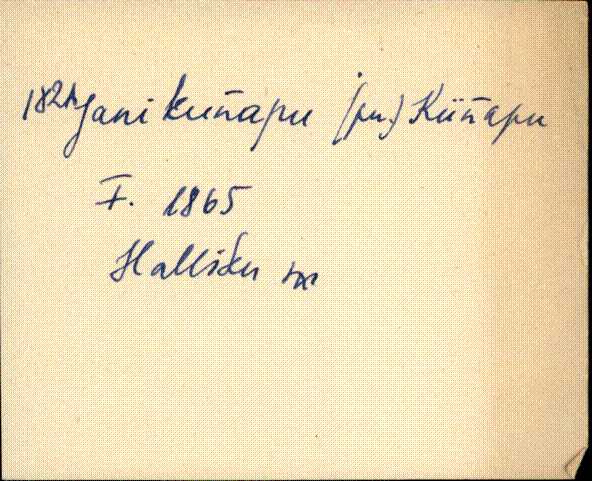 1821 Jani kuñapu (pu.) Küñapu
F. 1865
Halliku